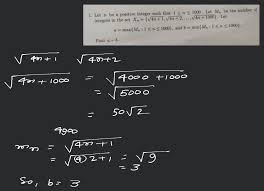 1. Let n be a positive integer such that 1 ≤ n ≤ 1000. Let Mₙ be the number of
integers in the set Xₙ = {√4n + 1, √4n + 2, ..., √4n + 1000}. Let
a = max{Mₙ : 1 ≤ n ≤ 1000}, and b = min{Mₙ : 1 ≤ n ≤ 1000}.
Find a - b.
√4n+1 √4n+2
√4n+1000 = √4000 + 1000
= √5000
= 50√2
4900
mn = √4n+1
= √(4)2+1 = √9
= 3
So, b = 3